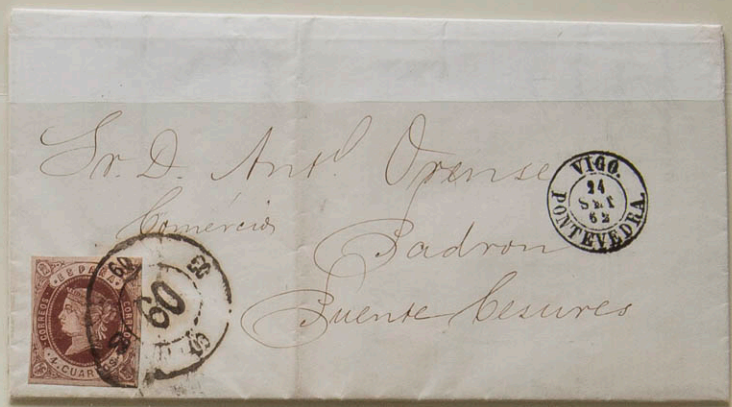 Sr. D. Antl. Orense
Comercio
Padron
Puente Cesures
VIGO.
24
SET
62
PONTEVEDRA.
60
60
ESPAÑA
CORREOS
4 CUARTOS